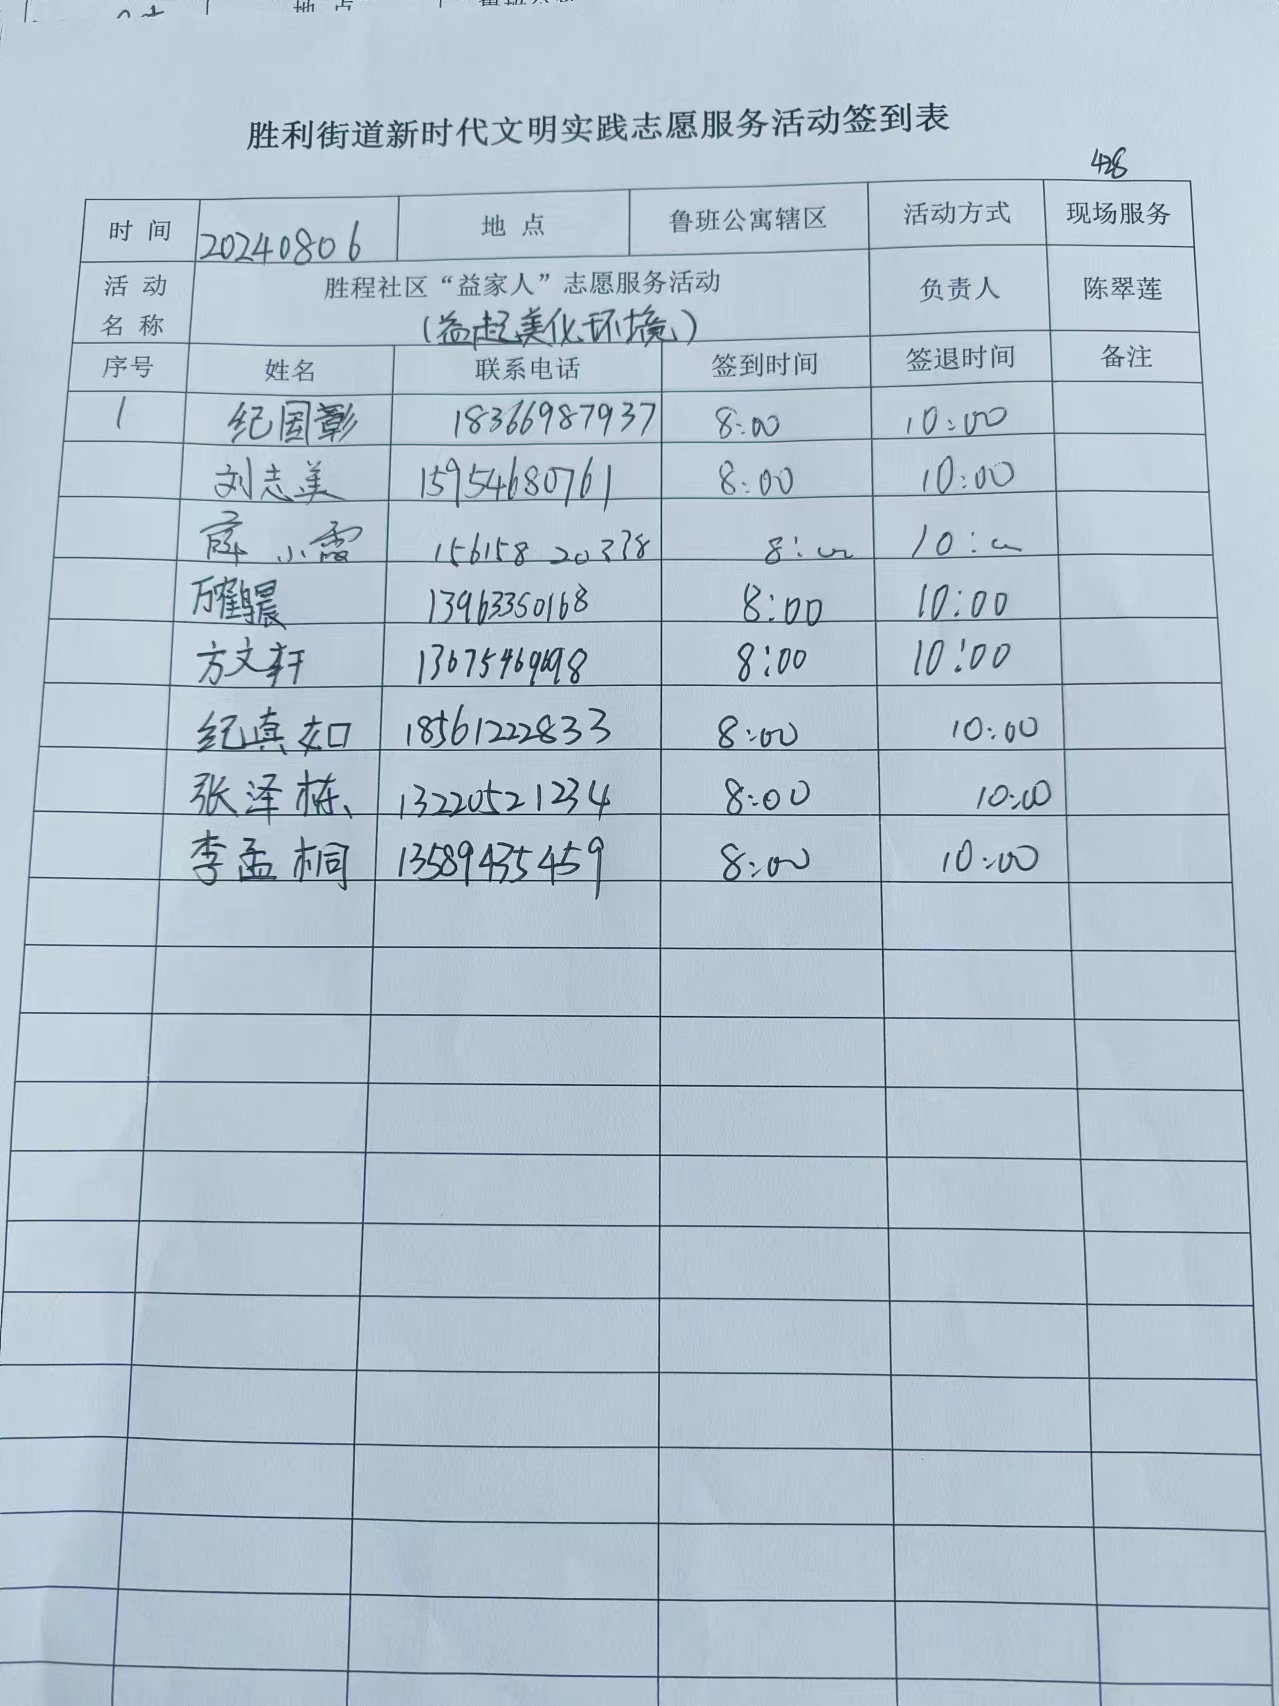 胜利街道新时代文明实践志愿服务活动签到表
428
时 间 20240806 地 点 鲁班公寓辖区 活动方式 现场服务
活 动 名 称 胜程社区“益家人”志愿服务活动 负责人 陈翠莲
(益起美化环境)
序号 姓名 联系电话 签到时间 签退时间 备注
1 纪国彰 18366987937 8:00 10:00
刘志美 15954680761 8:00 10:00
薛小霞 15615820338 8:00 10:00
万鹤晨 13963350168 8:00 10:00
方文轩 8:00 10:00
纪真如 18561222833 8:00 10:00
张泽栋 13220521234 8:00 10:00
李孟桐 13589435459 8:00 10:00